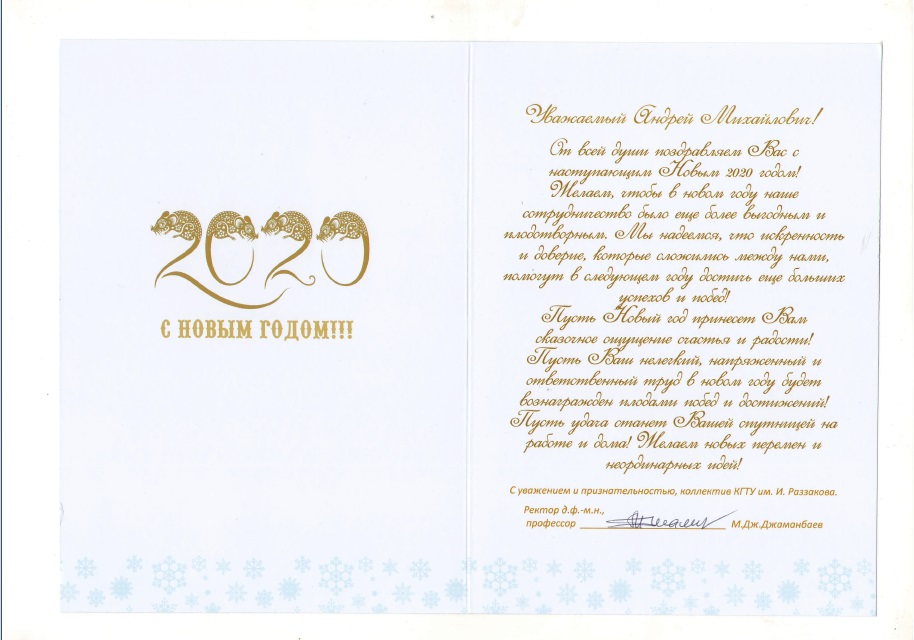 2020
С НОВЫМ ГОДОМ!!!
Уважаемый Андрей Михайлович!
От всей души поздравляем Вас с
наступающим Новым 2020 годом!
Желаем, чтобы в новом году наше
сотрудничество было еще более выгодным и
плодотворным. Мы надеемся, что искренность
и доверие, которые сложились между нами,
помогут в следующем году достичь еще больших
успехов и побед!
Пусть Новый год принесет Вам
сказочное ощущение счастья и радости!
Пусть Ваш нелегкий, напряженный и
ответственный труд в новом году будет
вознагражден плодами побед и достижений!
Пусть удача станет Вашей спутницей на
работе и дома! Желаем новых перемен и
неординарных идей!
С уважением и признательностью, коллектив КГТУ им. И. Раззакова.
Ректор д.ф.-м.н.,
профессор М.Дж.Джаманбаев